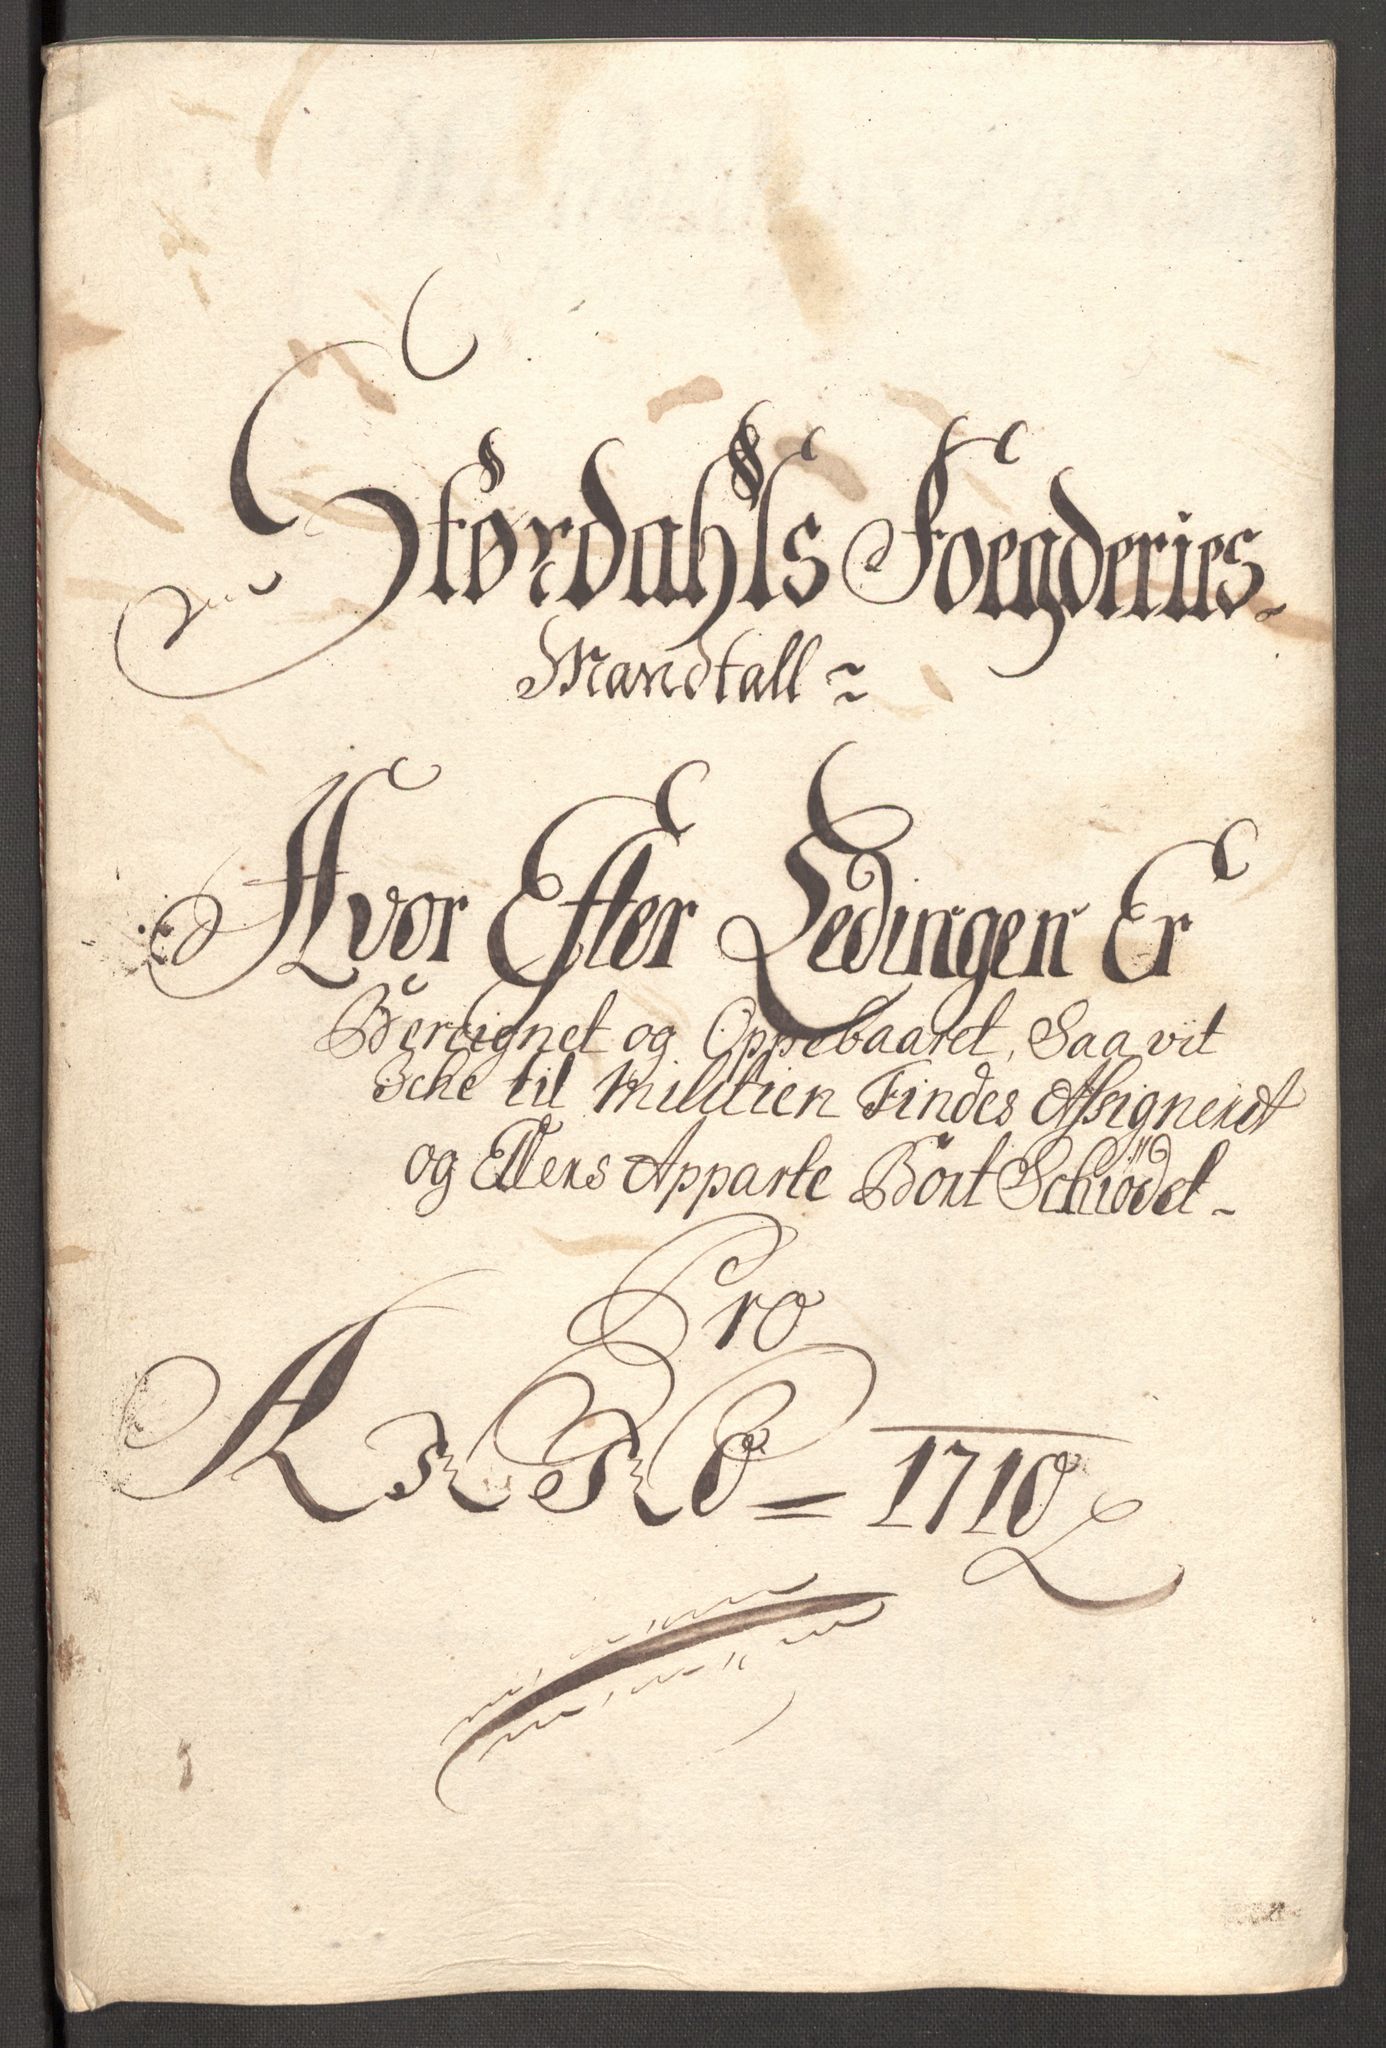 Størdahls Foegderies
Mandtall
Hvor Efter Ledingen Er
Bereignet og Oppebaaret, Saa vit
Iche til Militien Findes Assigneret
og Ellers Apparte Bort Schiödel
Pro
ANNO = 1710